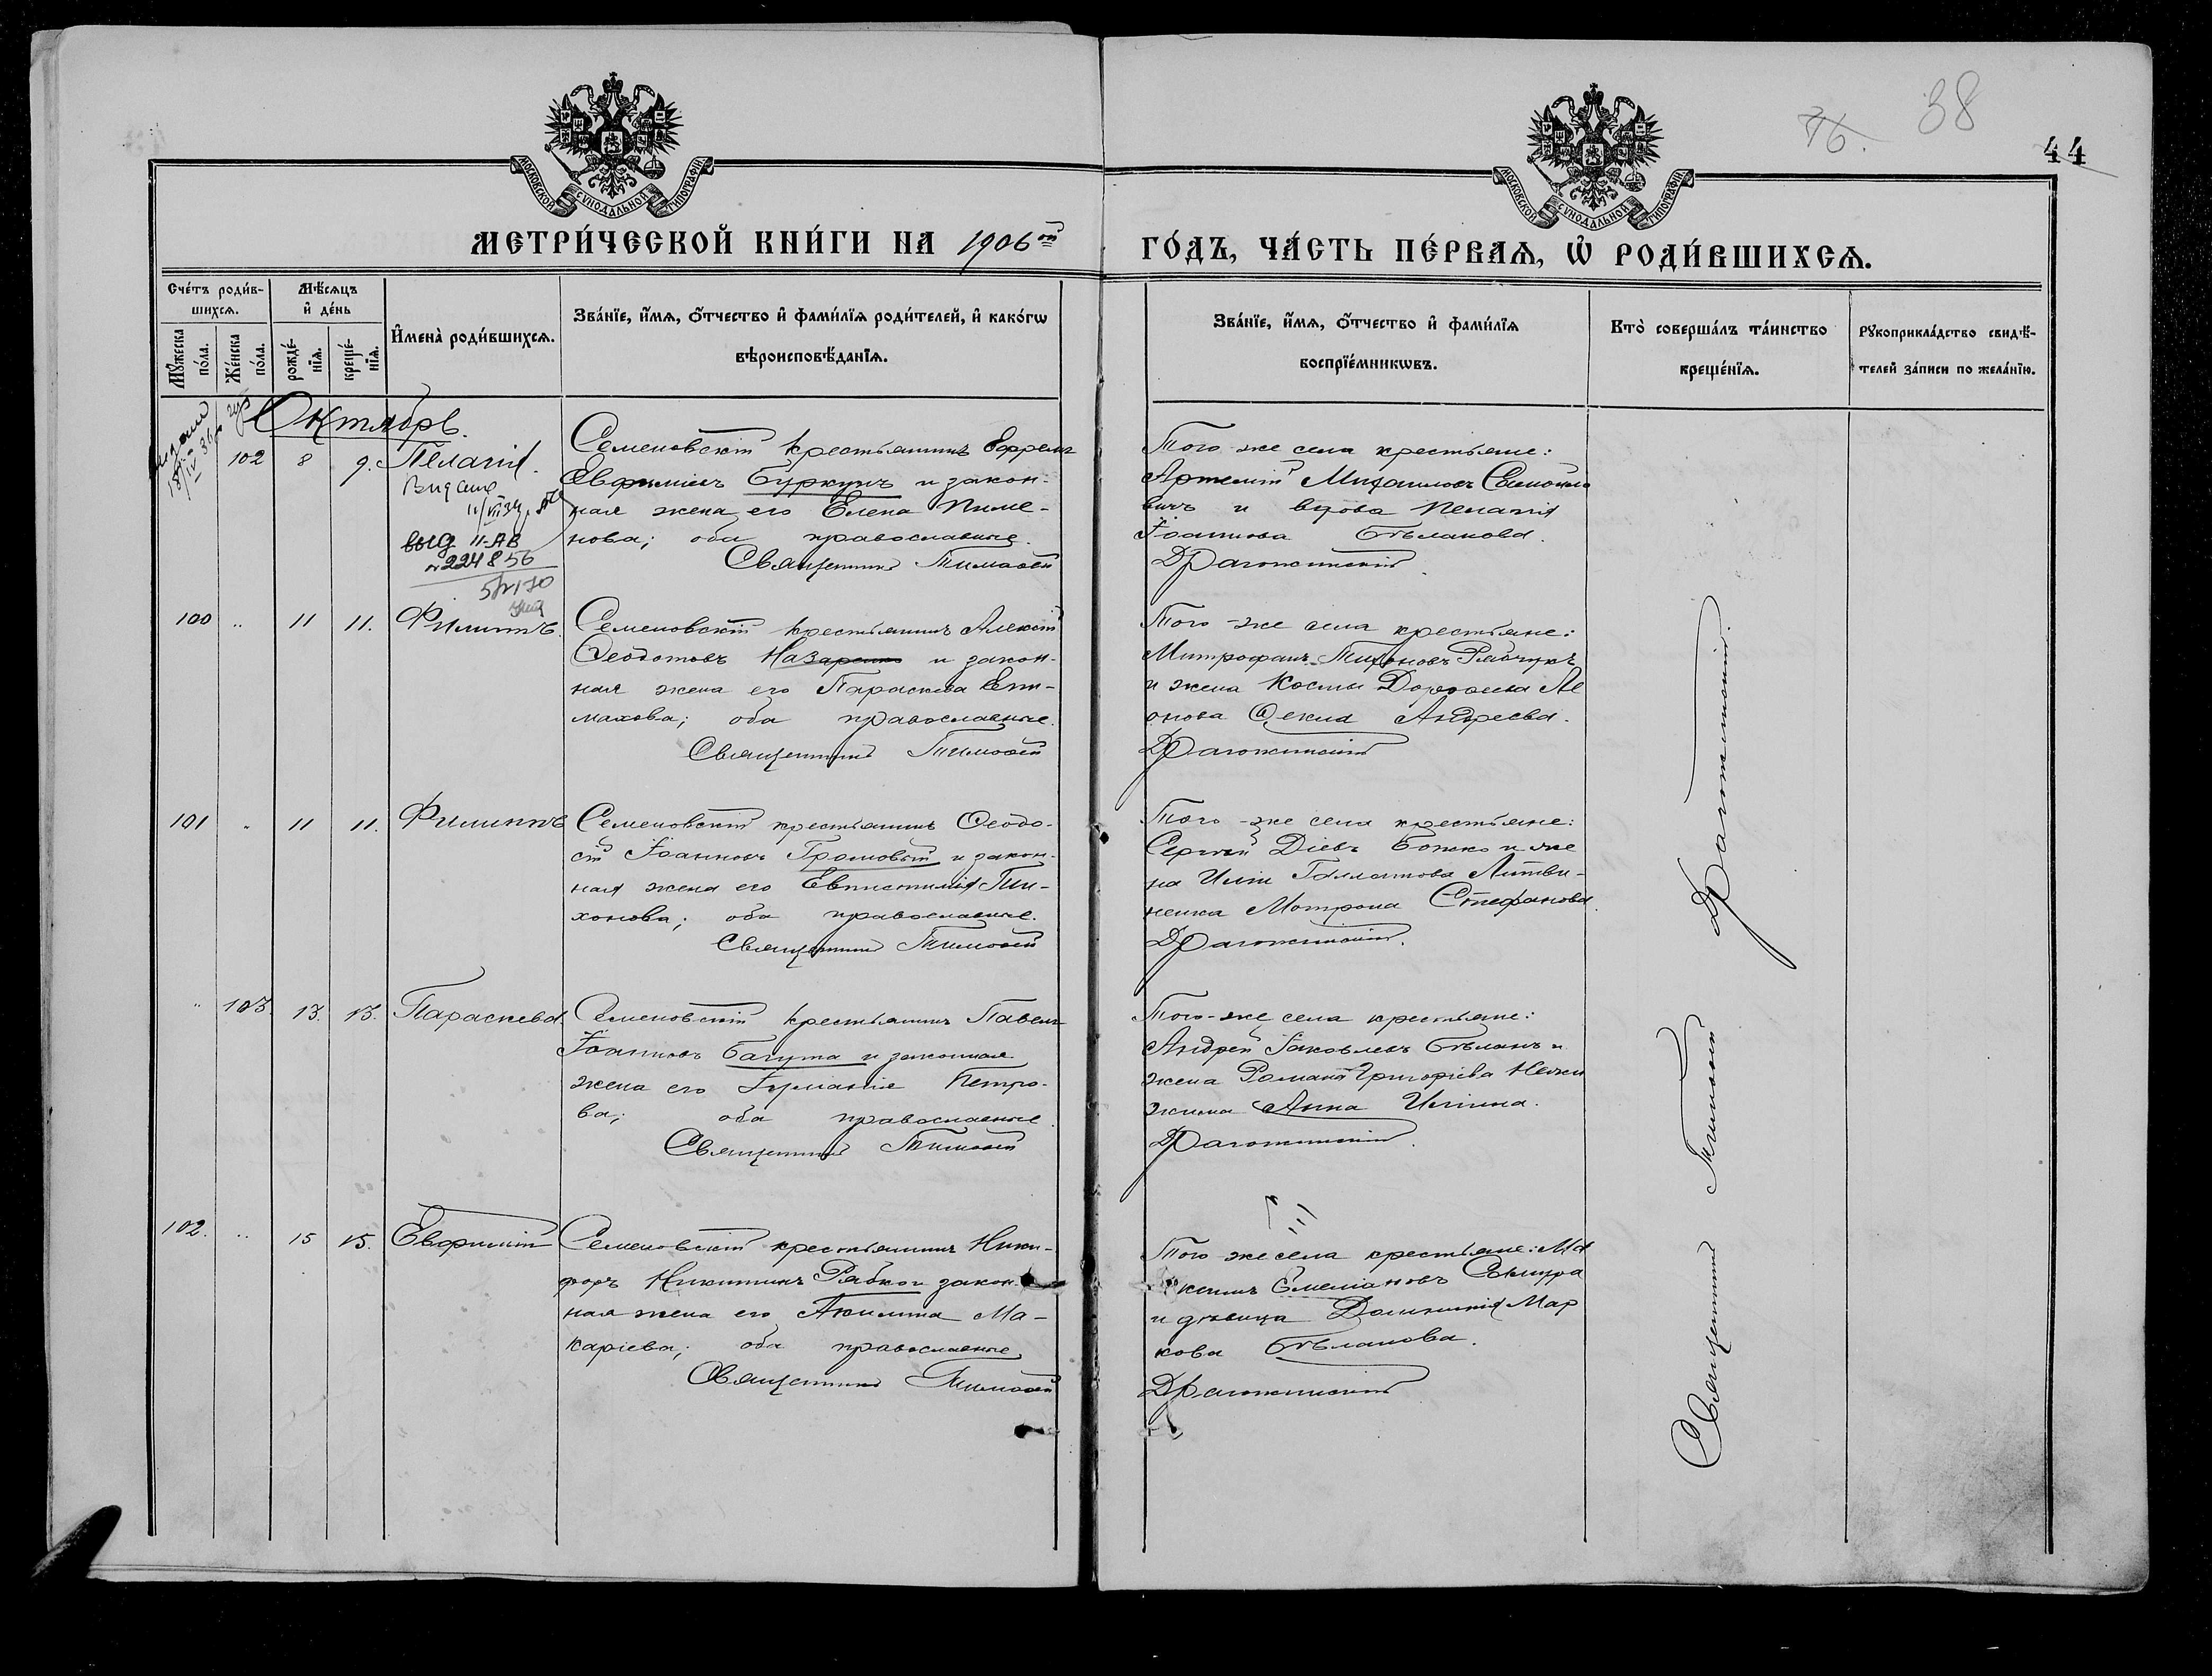 38
76.
44
МОСКОВСКОЙ СѴНОДАЛЬНОЙ ТИПОГРАФІИ
МОСКОВСКОЙ СѴНОДАЛЬНОЙ ТИПОГРАФІИ
МЕТРИ́ЧЕСКОЙ КНИ́ГИ НА 1906ой
ГО́ДЪ, ЧА́СТЬ ПЕ́РВАѦ, Ѡ҆ РОДИ́ВШИХСѦ.
Сче́тъ роди́в-
шихсѧ.
Мꙋ́жеска по́ла.
Же́нска по́ла.
Мѣ́сѧцъ
и҆ де́нь
рожде́-
нїѧ.
креще́-
нїѧ.
И҆мена̀ роди́вшихсѧ.
Зва́нїе, и҆́мѧ, ѻ҆́тчество и҆ фами́лїѧ роди́телей, и҆ како́гѡ
вѣроисповѣ́данїѧ.
Зва́нїе, и҆́мѧ, ѻ҆́тчество и҆ фами́лїѧ
воспрїе́мникѡвъ.
Кто̀ соверша́лъ та́инство
креще́нїѧ.
Рꙋкоприкла́дство свидѣ́-
телей за́писи по жела́нїю.
Октябрь.
102 8 9. Пелагія.
выд II-АВ
224856
Семеновскій крестьянинъ Ефремъ
Евфиміевъ Буркунъ и закон-
ная жена его Елена Пиме-
нова; оба православные.
Священникъ Тимофей
Того-же села крестьяне:
Артемій Михаиловъ
вичъ и вдова Пелагія
Іоаннова Бѣланова.
Драгожинскій
100 " 11 11. Филиппъ.
Семеновскій крестьянинъ Алексій
Ѳеодотовъ Назаренко и закон-
ная жена его Параскева Епи-
махова; оба православные.
Священникъ Тимофей
Того-же села крестьяне:
Митрофанъ Тихоновъ Рябчукъ
и жена Космы Дорофеева Ле
онова Ѳекла Андреева.
Драгожинскій
101 " 11 11. Филиппъ
Семеновскій крестьянинъ Ѳеодо-
сій Іоанновъ Громовый и закон-
ная жена его Евпистимія Ти-
хонова; оба православные.
Священникъ Тимофей
Того-же села крестьяне:
Сергѣй Діевъ Божко и же
на Иліи Галлактіонова Литви-
ненка Мотрона Стефанова.
Драгожинскій.
" 103. 13. 13. Параскева.
Семеновскій крестьянинъ Павелъ
Іоанновъ Багута и законная
жена его Іуліанія Петро-
ва; оба православные.
Священникъ Тимофей
Того-же села крестьяне:
Андрей Іаковлевъ Бѣланъ и
жена Романа Григоріева
Анна Иліина.
Драгожинскій.
102. " 15 15. Евфимій
Семеновскій крестьянинъ Ники-
форъ Никитинъ Рябко и закон-
ная жена его Акилина Ма-
каріева; оба православные
Священникъ Тимофей
Того же села крестьяне: Ма
ксимъ Емеліановъ
и дѣвица Домникія Мар
кова Бѣланова.
Драгожинскій
Священникъ Тимофей Драгожинскій.